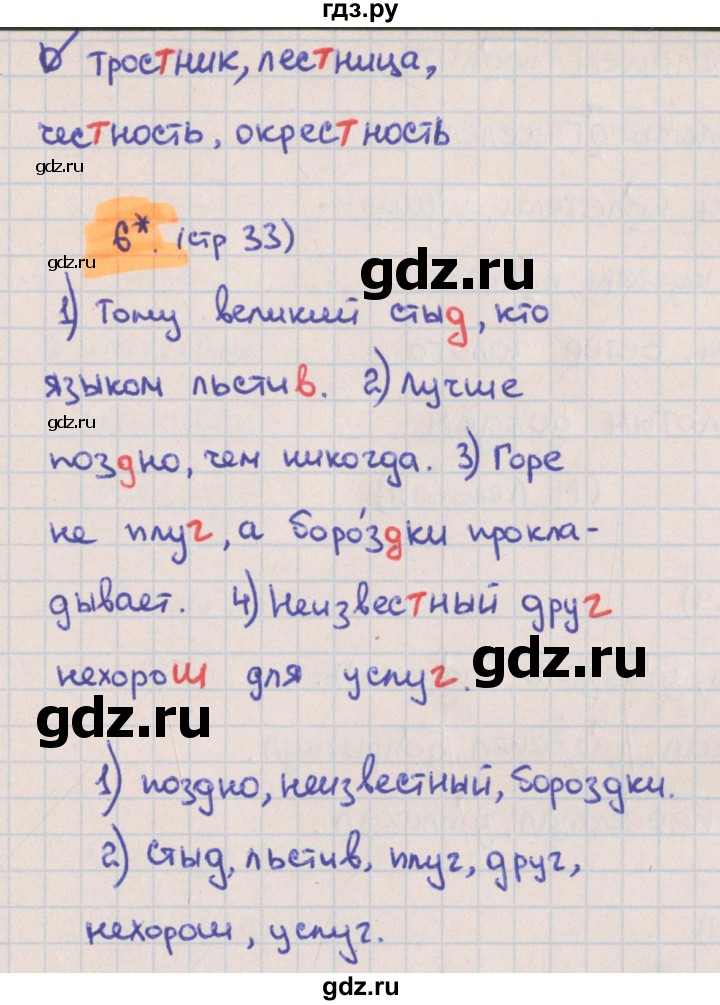 гдз.ру
✓ тростник, лестница,
честность, окрестность
gdz.ru
6*. (стр 33)
gdz.ru
gdz.ru
1) Тому великий стыд, кто
языком льстив. 2) Лучше
gdz.ru
поздно, чем никогда. 3) Горе
не плуг, а боро́здки прокла-
дывает. 4) Неизвестный друг
gdz.ru
нехорош для услуг.
gdz.ru
1) поздно, неизвестный, бороздки.
2) Стыд, льстив, плуг, друг,
нехорош, услуг.
gdz.ru